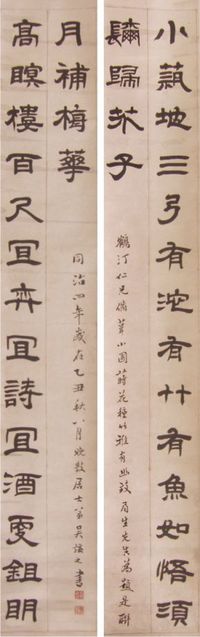 小蓺地三弓有沱有艸有魚如悟須
镾歸芥子
鶴汀仁兄脩葺小園蒔花種竹雅有幽致眉生先生為題是聯
高瞑樓百尺宜弈宜詩宜酒更鉏明
月補梅華
同治四年歲在乙丑秋八月晚斅居士弟吳讓之書